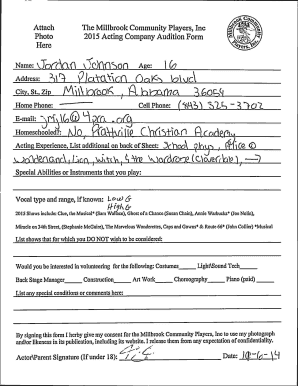 Attach
Photo
Here
The Millbrook Community Players, Inc
2015 Acting Company Audition Form
Millbrook Community Players, Inc.
Name: Jordan Johnson Age: 16
Address: 317 Platation Oaks blvd
City, St, Zip Millbrook, Albama 36054
Home Phone: Cell Phone: (843) 525-3702
E-mail: @4pra.org
Homeschooled? No, Prattville Christian Academy
Acting Experience, List additional on back of Sheet: School plays, Alice @
wonderland, Lion, witch, & the Wardrobe (Cloverdale), →
Special Abilities or Instruments that you play:
Vocal type and range, if known: Low G
High G
2015 Shows include: Clue, the Musical* (Sam Wallace), Ghost of a Chance (Susan Chain), Annie Warbucks* (Joe Nolin),
Miracle on 34th Street, (Stephanie McGuire), The Marvelous Wonderettes, Caps and Gowns* & Route 66* (John Collier) *Musical
List shows that for which you DO NOT wish to be considered:
Would you be interested in volunteering for the following: Costumes Light/Sound Tech
Back Stage Manager Construction Art Work Choreography Piano (paid)
List any special conditions or comments here:
By signing this form I herby give my consent for the Millbrook Community Players, Inc to use my photograph
and/or likeness in its publication, including its website. I release them from any expectation of confidentiality.
Actor/Parent Signature (If under 18): Date: 10-6-14